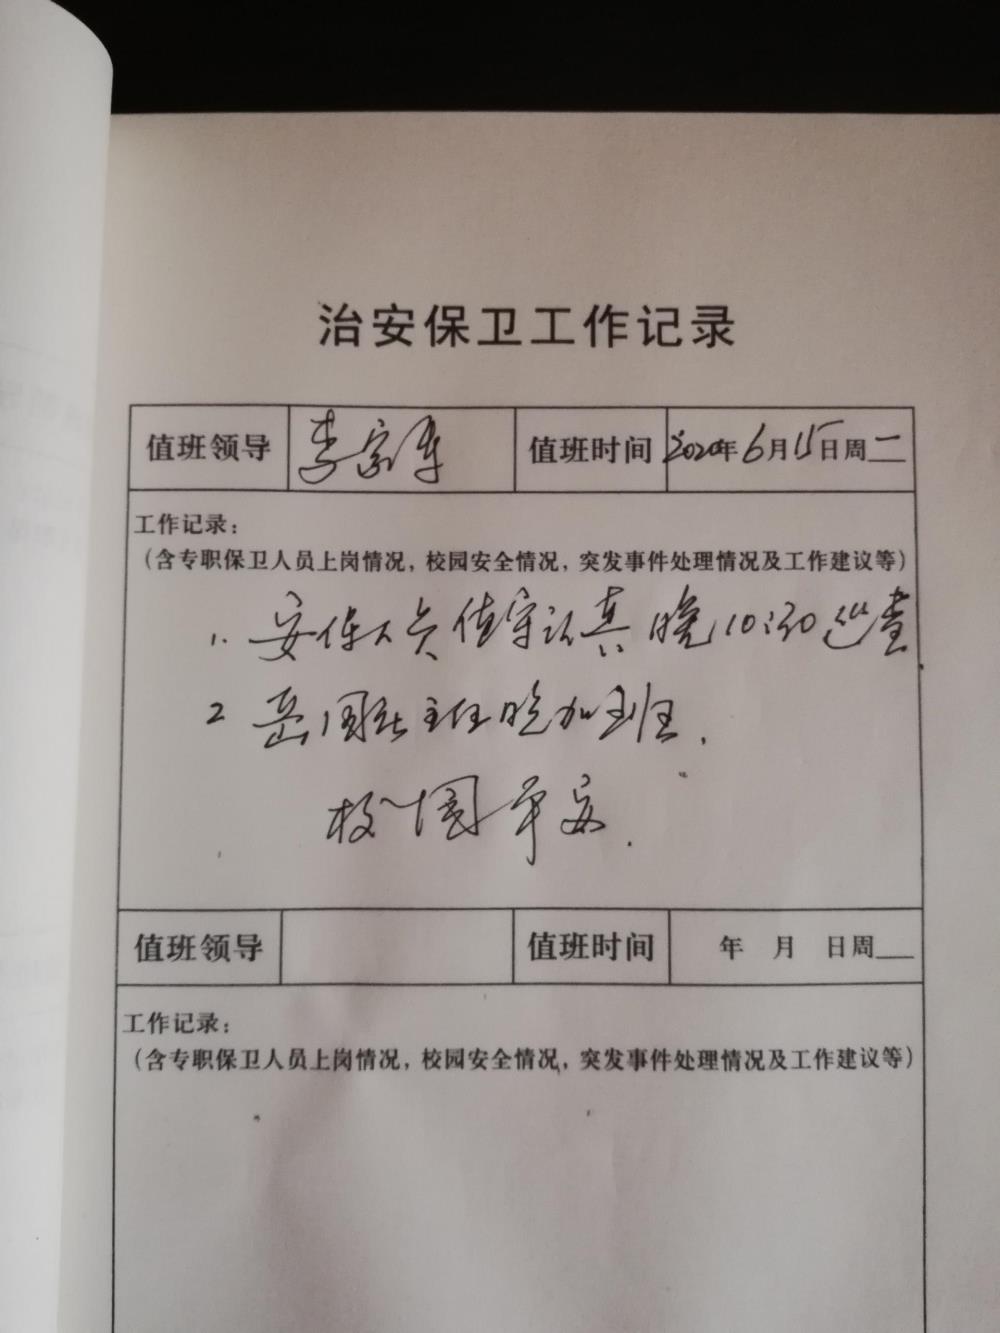 治安保卫工作记录
值班领导 李宗 值班时间 2020年6月15日周二
工作记录：
（含专职保卫人员上岗情况，校园安全情况，突发事件处理情况及工作建议等）
1. 安保人员值守认真 晚10:30巡查.
2 岳国 主任晚加班.
校园平安.
值班领导 值班时间 年 月 日周
工作记录：
（含专职保卫人员上岗情况，校园安全情况，突发事件处理情况及工作建议等）